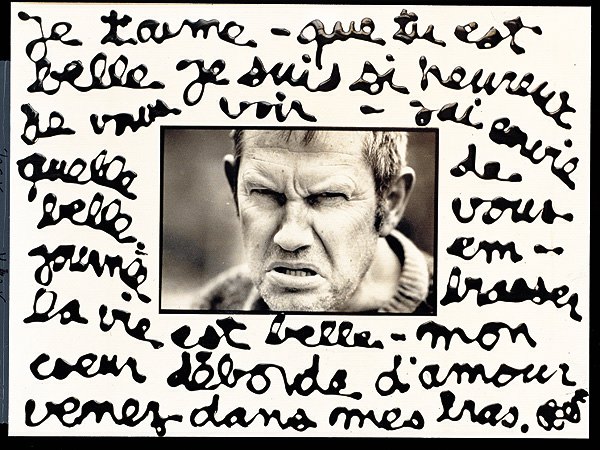 je taime - que tu est
belle je suis si heureux
de vous voir - jai envie
de
vous
em-
brasser
quelle
belle
journé
la vie est belle - mon
coeur déborde d'amour
venez dans mes bras.